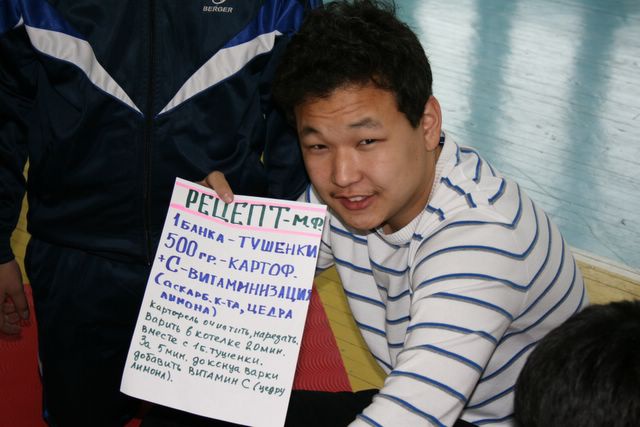 BERGER
РЕЦЕПТ-МФ
1 БАНКА-ТУШЕНКИ
500 ГР.-КАРТОФ.
+ С-ВИТАМИНИЗАЦИЯ
(АСКАРБ. К-ТА, ЦЕДРА
ЛИМОНА)
картофель очистить, нарезать.
Варить в котелке 20 мин.
вместе с 1б. тушенки.
За 5 мин. до конца варки
добавить ВИТАМИН С (цедру
лимона).